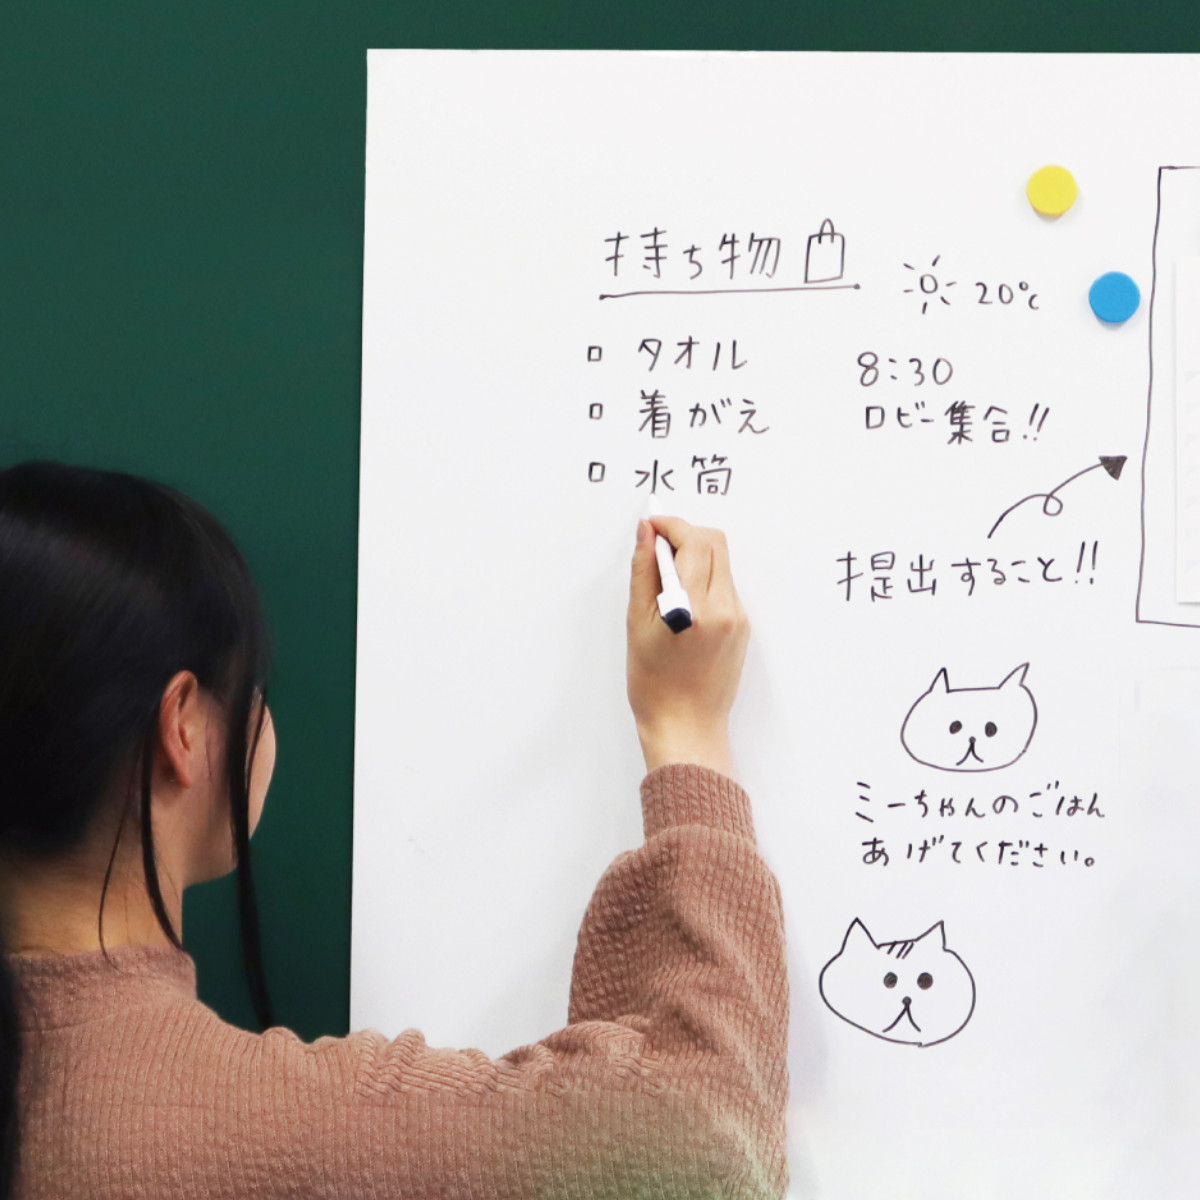 持ち物
20℃
□ タオル
□ 着がえ
□ 水筒
8:30
ロビー集合!!
提出すること!!
ミーちゃんのごはん
あげてください。